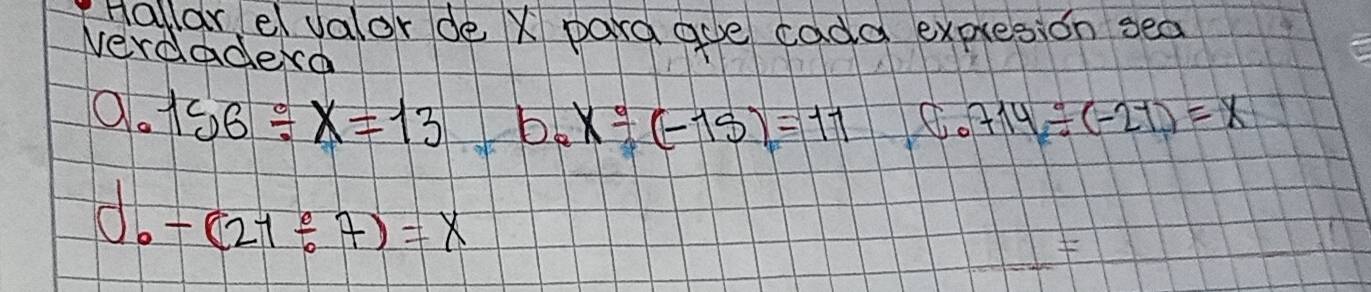 Hallar el valor de X para que cada expresión sea
verdadera
a. 156 ÷ X = 13 b. X ÷ (-15) = 11 c. 714 ÷ (-21) = X
d. -(21 ÷ 7) = X
=